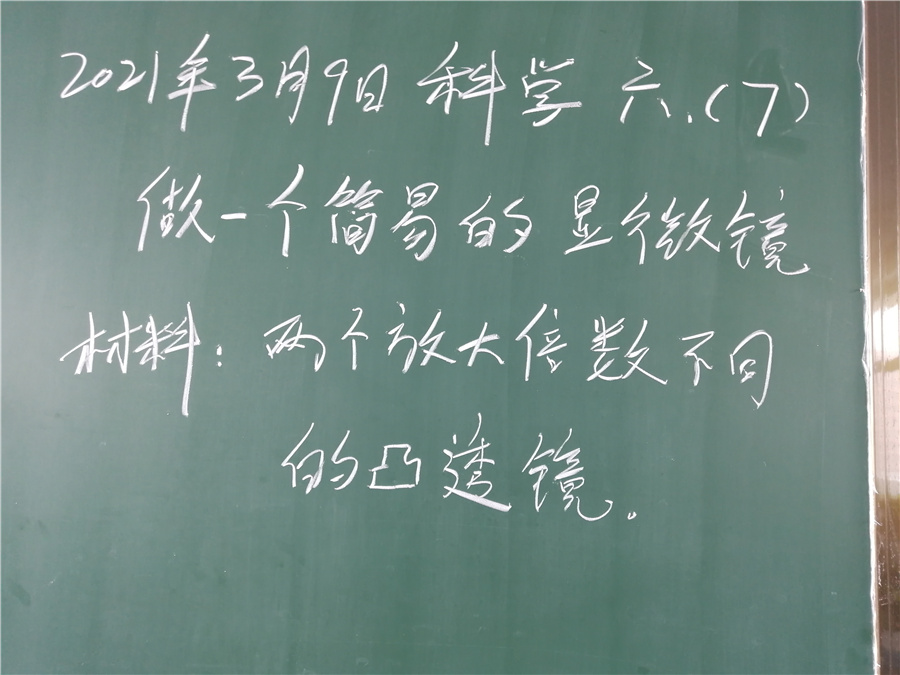 2021年3月9日 科学 六.(7)
做一个简易的显微镜
材料：两个放大倍数不同
的凸透镜。